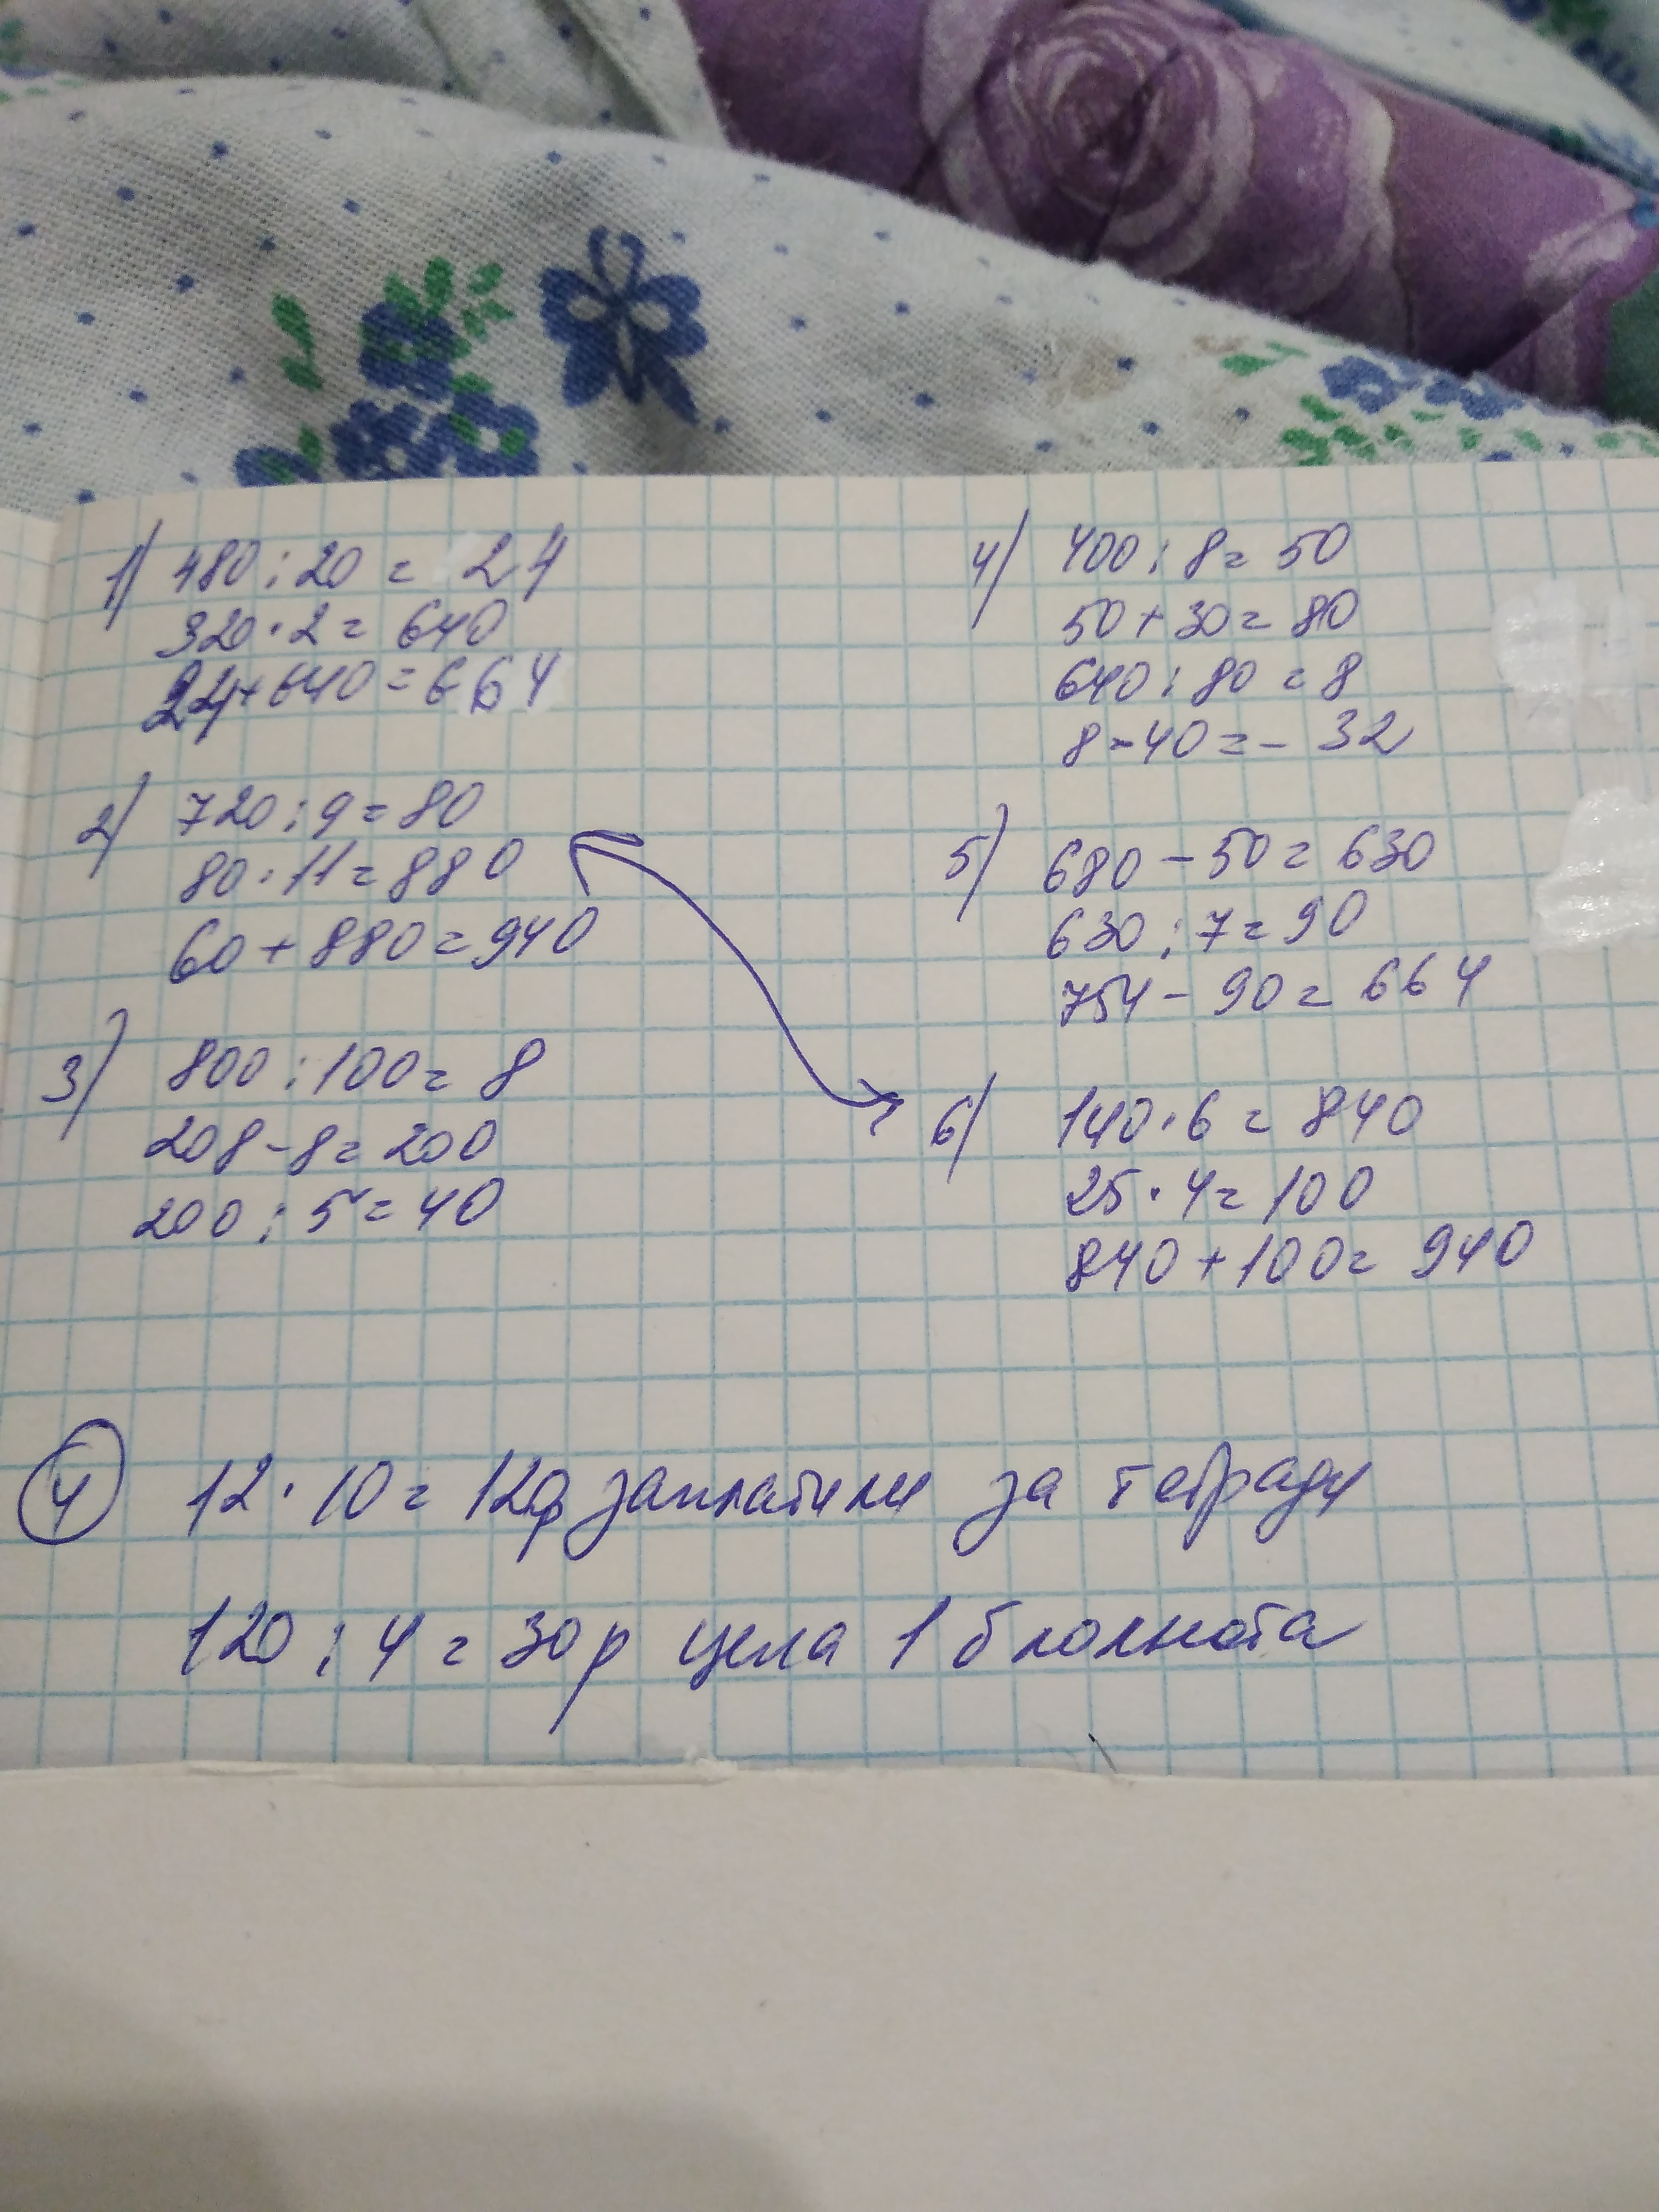 1) 480 : 20 = 24
320 · 2 = 640
24 + 640 = 664
2) 720 : 9 = 80
80 · 11 = 880
60 + 880 = 940
3) 800 : 100 = 8
208 - 8 = 200
200 : 5 = 40
4) 400 : 8 = 50
50 + 30 = 80
640 : 80 = 8
8 - 40 = - 32
5) 680 - 50 = 630
630 : 7 = 90
754 - 90 = 664
6) 140 · 6 = 840
25 · 4 = 100
840 + 100 = 940
4 12 · 10 = 120р заплатили за тетради
120 : 4 = 30р цена 1 блокнота